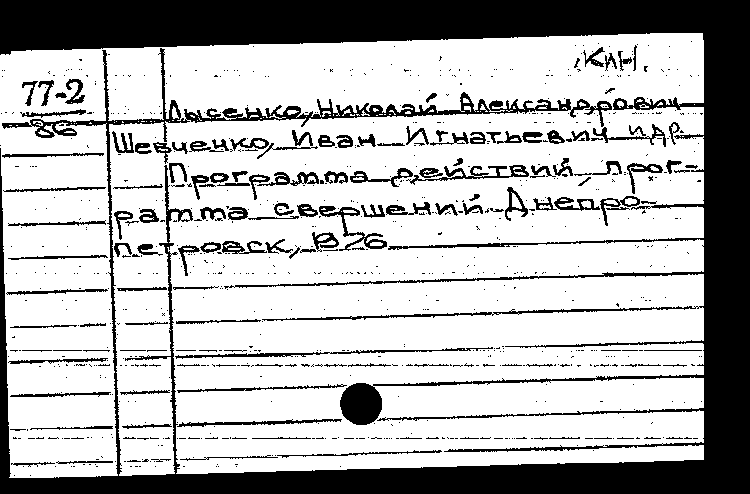 .КЛН.
77-2
86
Лысенко, Николай Александрович
Шевченко, Иван Игнатьевич и др.
Программа действий прог-
рамма свершений Днепро-
петровск, 1976